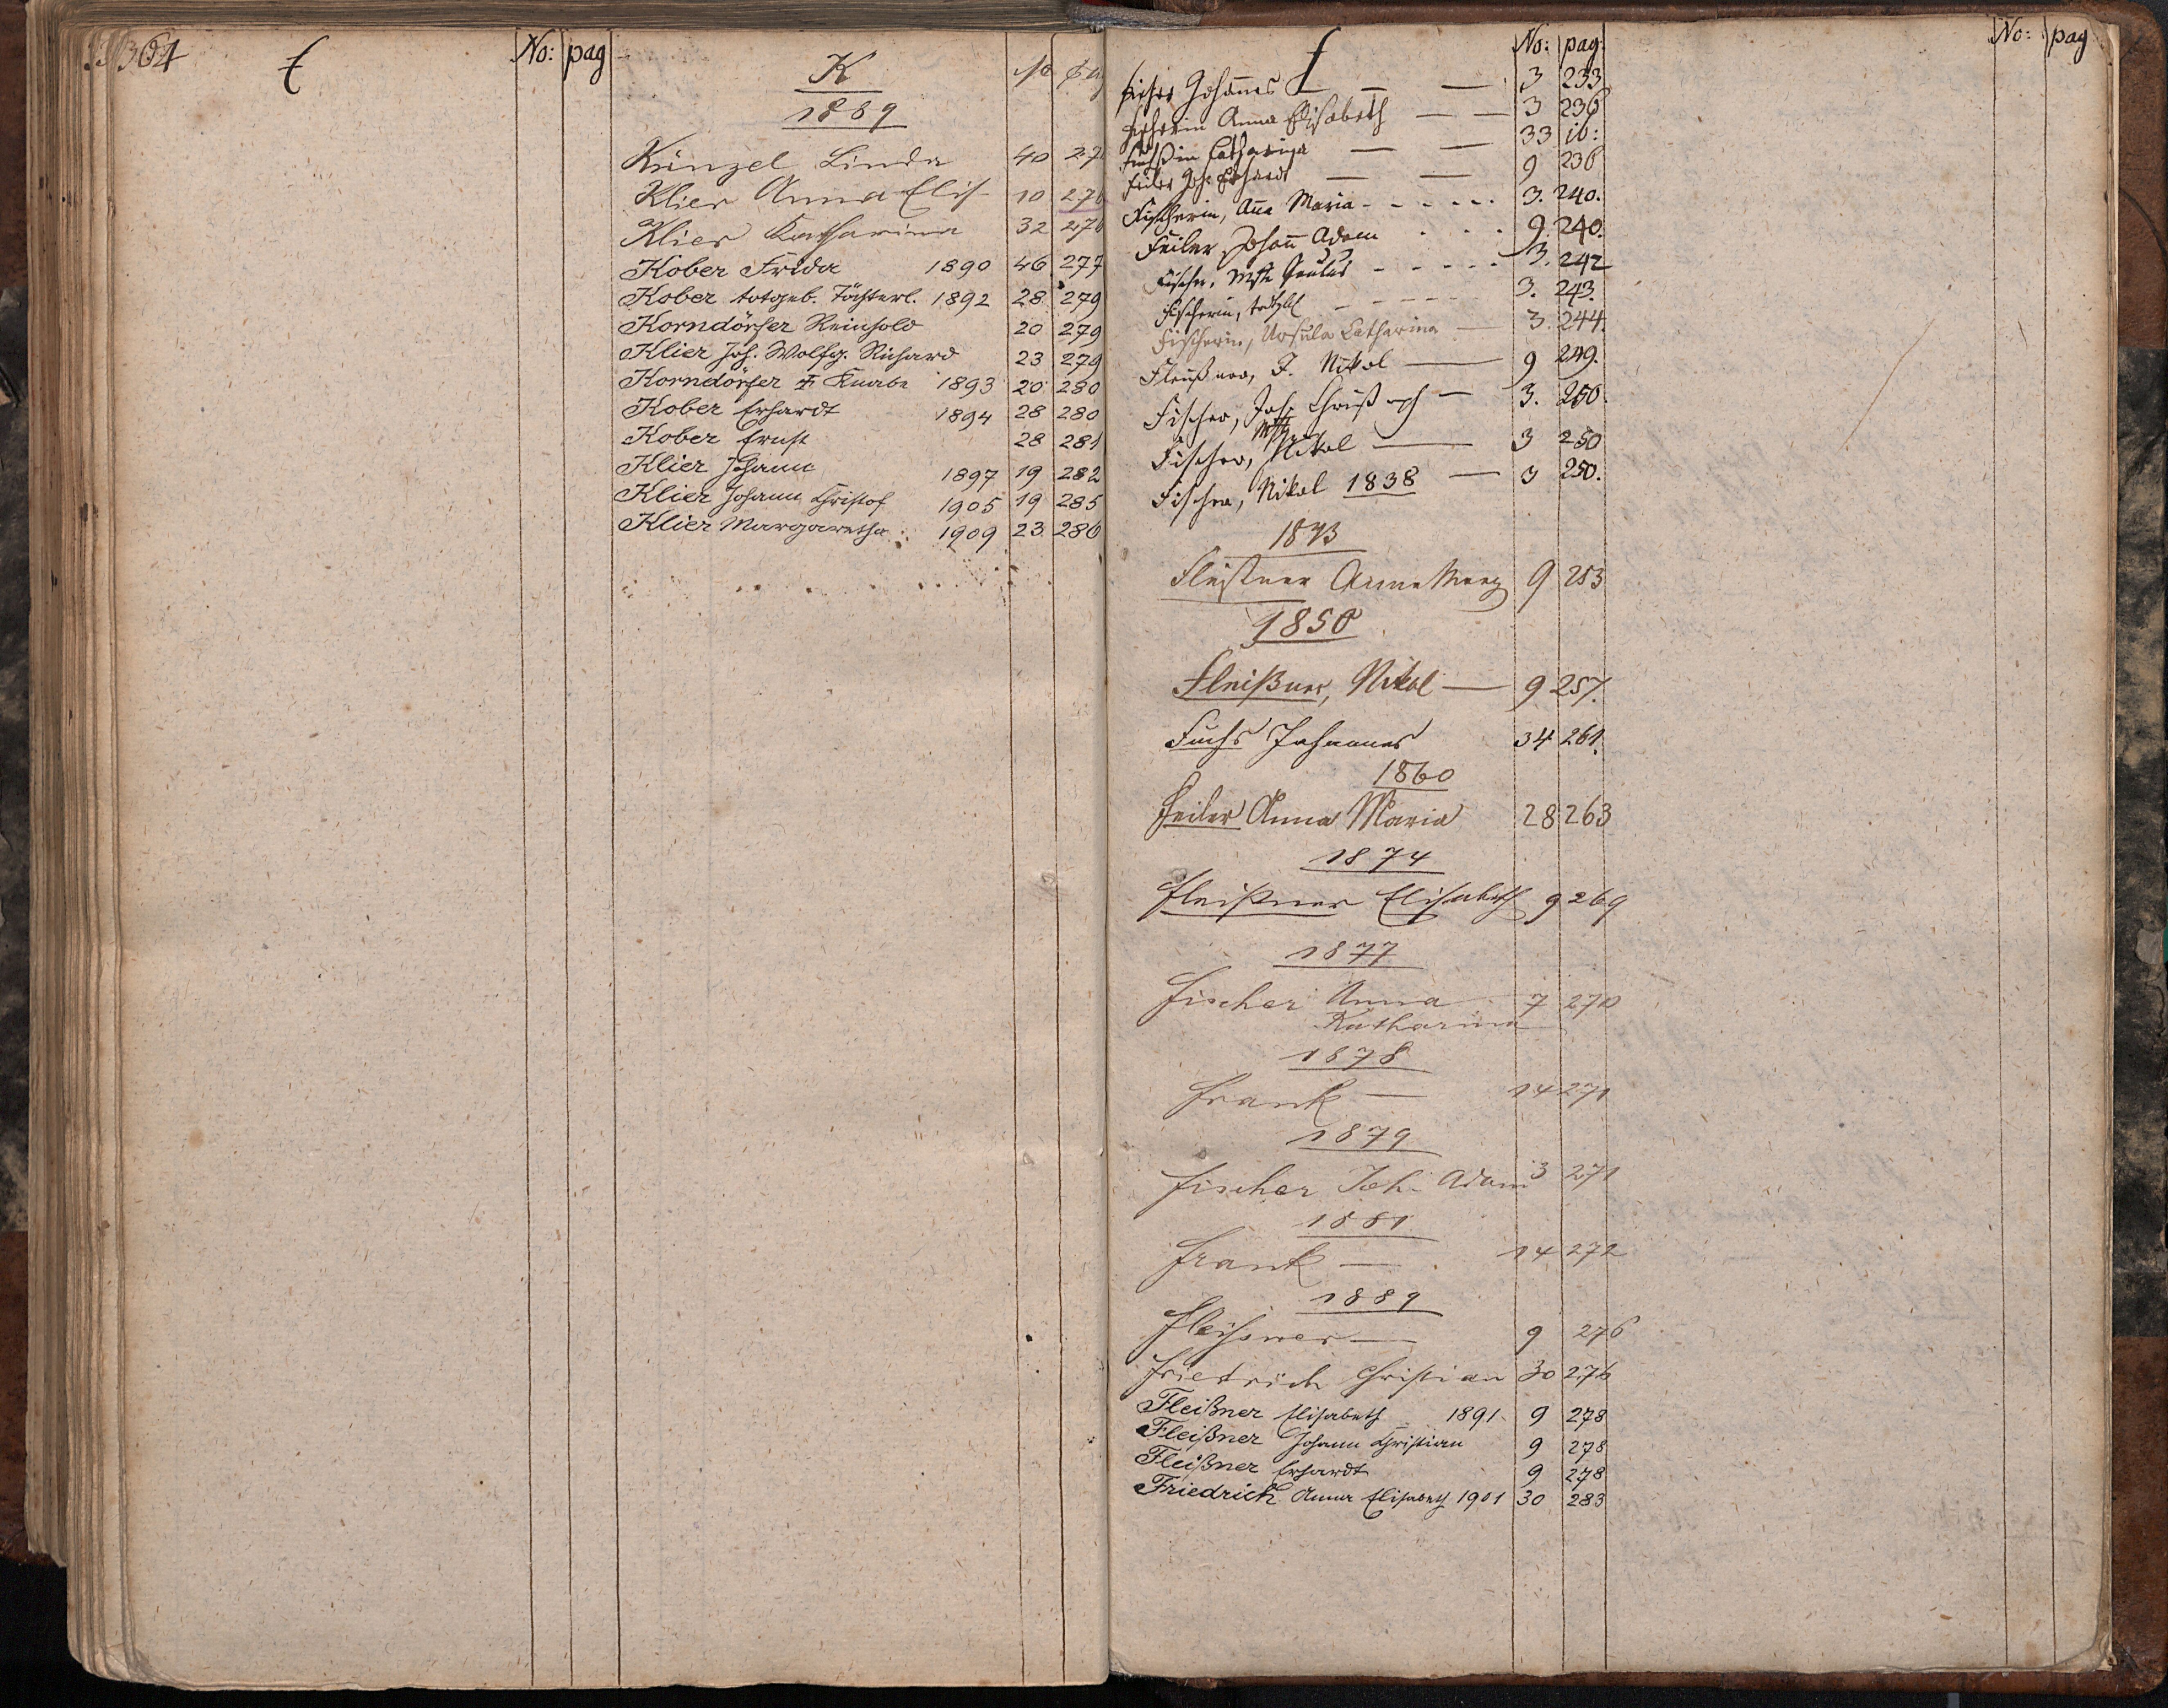 364
E
No: pag
K
No pag
1889
Künzel Linda 40 27
Klier Anna Elis. 10 276
Klier Katharina 32 276
Kober Frida 1890 46 277
Kober totgeb. Töchterl. 1892 28 279
Korndörfer Reinhold 20 279
Klier Joh. Wolfg. Richard 23 279
Korndörfer Knabe 1893 20 280
Kober Erhardt 1894 28 280
Kober Ernst 28 281
Klier Johann 1897 19 282
Klier Johann Christof 1905 19 285
Klier Margaretha 1909 23 286
f
No: pag.
Johannes — — 3 233
Fischerin Anna Elisabeth — — 3 236
Füchßin Catharina — — 33 ib:
Feiler Joh: Erhardt — — 9 238
Fischerin, Aña Maria - - - - - - 3. 240.
Feiler Johañ Adam . . . 9. 240.
Fischer, Mstr Paulus - - - - - 3. 242
Fischerin, - - - - - - 3. 243.
Fischerin, Ursula Catharina — 3. 244.
Fleißner, J. Nikol — 9 249.
Fischer, Joh. Christoph — 3. 250.
Fischer, Mstr Nikol — 3 250
Fischer, Nikol 1838 — 3 250.
1843
Fleißner Anna Marg 9 253
1850
Fleißner, Nikol — 9 257.
Fuchs Johannes 34 261.
1860
Feiler Anna Maria 28 263
1874
Fleißner Elisabeth 9 269
1877
Fischer Anna 7 270
Katharina
1878
Frank — 14 271
1879
Fischer Joh. Adam 3 271
1881
Frank — 14 272
1889
Fleißner — 9 276
Friedrich Christian 30 276
Fleißner Elisabeth 1891. 9 278
Fleißner Johann Christian 9 278
Fleißner Erhardt 9 278
Friedrich Anna Elisabeth 1901 30 283
No: pag